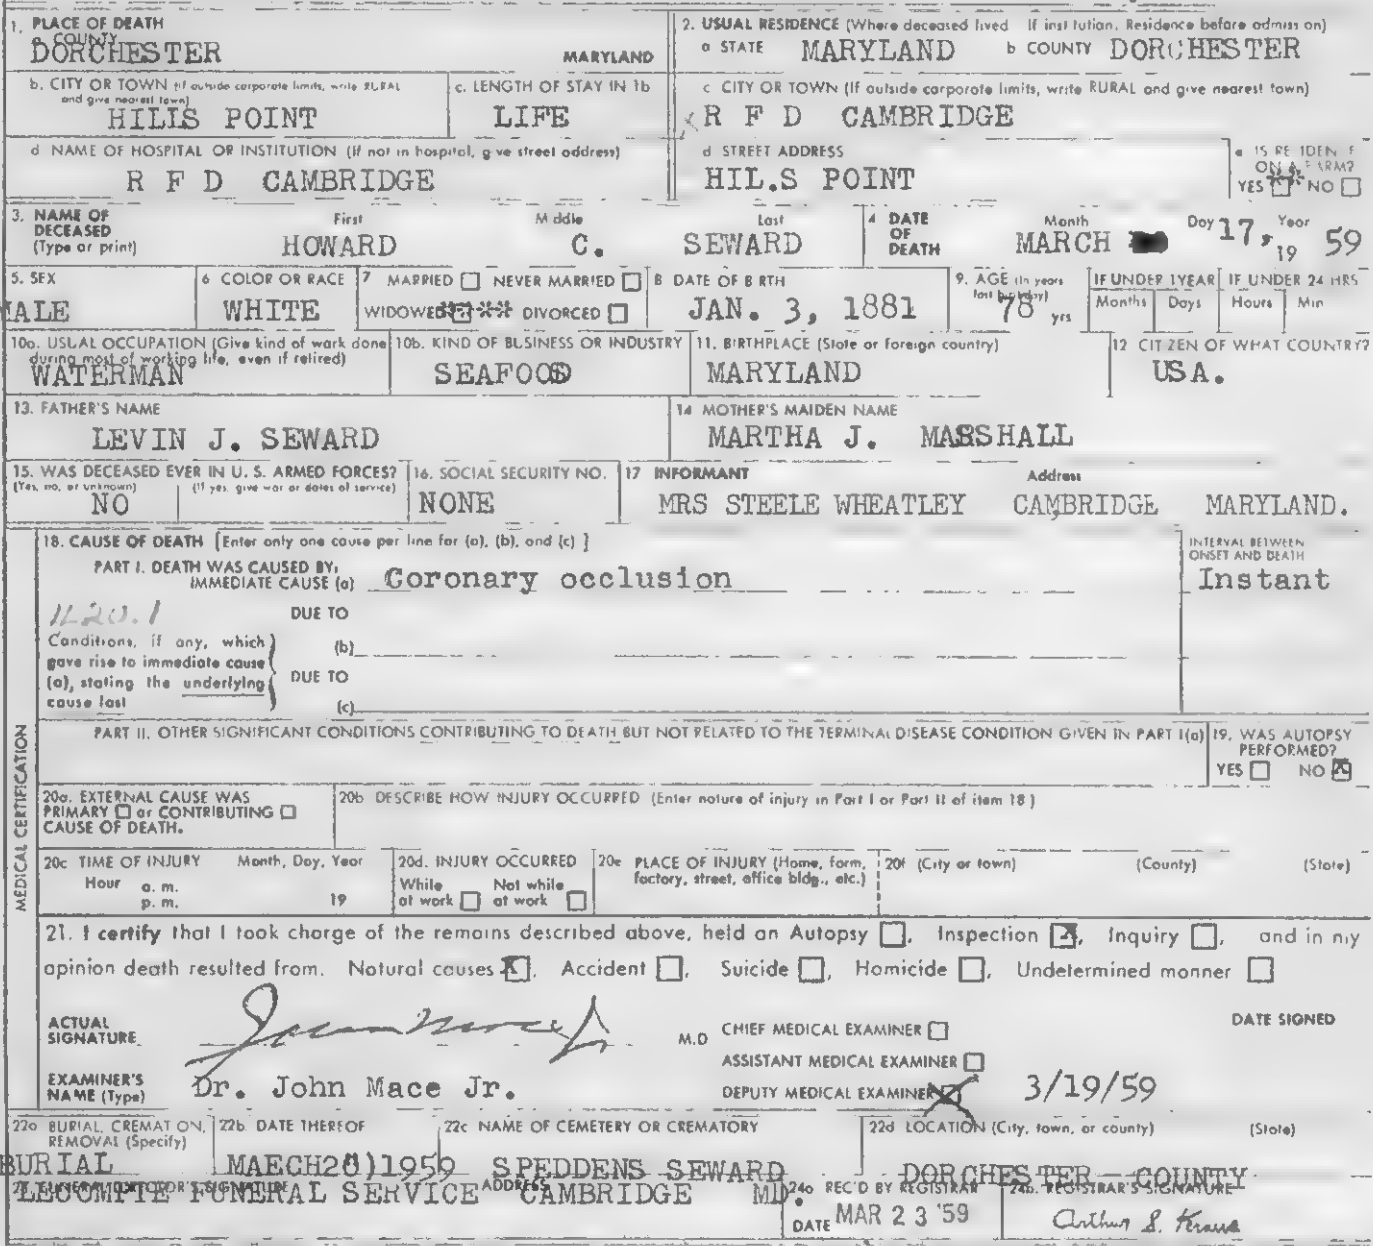 1. PLACE OF DEATH
a. COUNTY
DORCHESTER MARYLAND
2. USUAL RESIDENCE (Where deceased lived If inst tution, Residence before admiss on)
a STATE MARYLAND b COUNTY DORCHESTER
b. CITY OR TOWN (If outside corporate limits, write RURAL and give nearest town)
HILLS POINT
c. LENGTH OF STAY IN 1b
LIFE
c CITY OR TOWN (If outside corporate limits, write RURAL and give nearest town)
R F D CAMBRIDGE
d NAME OF HOSPITAL OR INSTITUTION (If not in hospital, g ve street address)
R F D CAMBRIDGE
d STREET ADDRESS
HIL.S POINT
e IS RE IDEN E
ON A FARM?
YES NO
3. NAME OF DECEASED
(Type or print)
First Middle Last
HOWARD C. SEWARD
4 DATE OF DEATH
Month Day Year
MARCH 17, 19 59
5. SEX
MALE
6 COLOR OR RACE
WHITE
7 MARRIED NEVER MARRIED
WIDOWED *** DIVORCED
8 DATE OF B RTH
JAN. 3, 1881
9. AGE (In years last birthday)
78 yrs
IF UNDER 1 YEAR IF UNDER 24 HRS
Months Days Hours Min
10a. USUAL OCCUPATION (Give kind of work done during most of working life, even if retired)
WATERMAN
10b. KIND OF BUSINESS OR INDUSTRY
SEAFOOD
11. BIRTHPLACE (State or foreign country)
MARYLAND
12 CIT ZEN OF WHAT COUNTRY?
USA.
13. FATHER'S NAME
LEVIN J. SEWARD
14 MOTHER'S MAIDEN NAME
MARTHA J. MARSHALL
15. WAS DECEASED EVER IN U. S. ARMED FORCES?
(Yes, no, or unknown) (If yes, give war or dates of service)
NO
16. SOCIAL SECURITY NO.
NONE
17 INFORMANT Address
MRS STEELE WHEATLEY CAMBRIDGE MARYLAND.
MEDICAL CERTIFICATION
18. CAUSE OF DEATH [Enter only one cause per line for (a), (b), and (c) ]
INTERVAL BETWEEN ONSET AND DEATH
PART I. DEATH WAS CAUSED BY:
IMMEDIATE CAUSE (a) Coronary occlusion Instant
420.1 DUE TO
Conditions, if any, which gave rise to immediate cause (a), stating the underlying cause last
(b)
DUE TO
(c)
PART II. OTHER SIGNIFICANT CONDITIONS CONTRIBUTING TO DEATH BUT NOT RELATED TO THE TERMINAL DISEASE CONDITION GIVEN IN PART I(a)
19. WAS AUTOPSY PERFORMED?
YES NO X
20a. EXTERNAL CAUSE WAS
PRIMARY or CONTRIBUTING
CAUSE OF DEATH.
20b DESCRIBE HOW INJURY OCCURRED (Enter nature of injury in Part I or Part II of item 18 )
20c TIME OF INJURY Month, Day, Year
Hour a. m.
p. m. 19
20d. INJURY OCCURRED
While at work Not while at work
20e PLACE OF INJURY (Home, farm, factory, street, office bldg., etc.)
20f (City or town) (County) (State)
21. I certify that I took charge of the remains described above, held an Autopsy , Inspection X, Inquiry , and in my
opinion death resulted from. Natural causes X, Accident , Suicide , Homicide , Undetermined manner
ACTUAL SIGNATURE John Mace Jr M.D
CHIEF MEDICAL EXAMINER
DATE SIGNED
ASSISTANT MEDICAL EXAMINER
EXAMINER'S NAME (Type) Dr. John Mace Jr.
DEPUTY MEDICAL EXAMINER X 3/19/59
22a BURIAL, CREMAT ON, REMOVAL (Specify)
BURIAL
22b. DATE THEREOF
MAECH20)1959
22c NAME OF CEMETERY OR CREMATORY
SPEDDENS SEWARD
22d LOCATION (City, town, or county) (State)
DORCHESTER COUNTY
FUNERAL DIRECTOR'S SIGNATURE ADDRESS
LECOMPTE FUNERAL SERVICE CAMBRIDGE MD.
24a REC'D BY REGISTRAR
DATE MAR 23 '59
24b. REGISTRAR'S SIGNATURE
Arthur S. Kraus